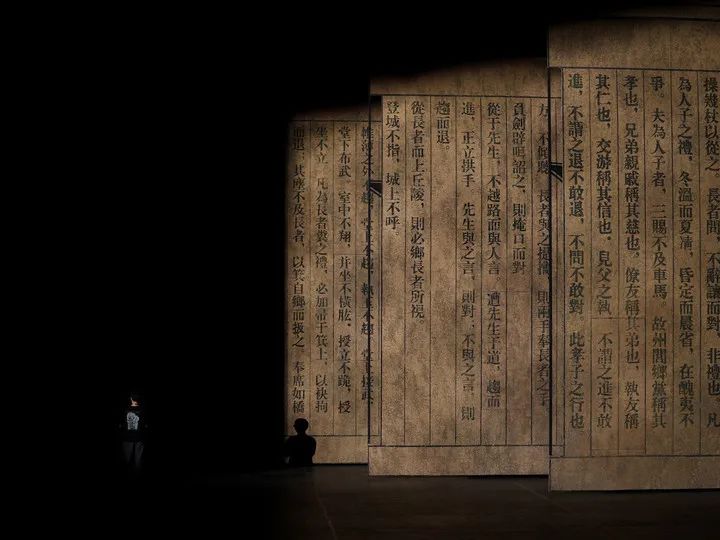 操幾杖以從之。長者問，不辭讓而對，非禮也。凡
為人子之禮，冬溫而夏凊，昏定而晨省，在醜夷不
爭。夫為人子者，三賜不及車馬 故州閭鄉黨稱其
孝也，兄弟親戚稱其慈也，僚友稱其弟也，執友稱
其仁也，交游稱其信也。見父之執 不謂之進不敢
進，不謂之退不敢退，不問不敢對 此孝子之行也
方，不傾聽 長者與之提攜 則兩手奉長者之手
負劍辟咡詔之，則掩口而對
從于先生，不越路而與人言 遭先生于道，趨而
進，正立拱手 先生與之言，則對；不與之言，則
趨而退
從長者而上丘陵，則必鄉長者所視。
登城不指，城上不呼。
帷薄之外不趨，堂上不趨，執玉不趨 堂上接武，
堂下布武 室中不翔，并坐不橫肱，授立不跪，授
坐不立 凡為長者糞之禮，必加帚于箕上，以袂拘
而退；其塵不及長者，以箕自鄉而扱之 奉席如橋